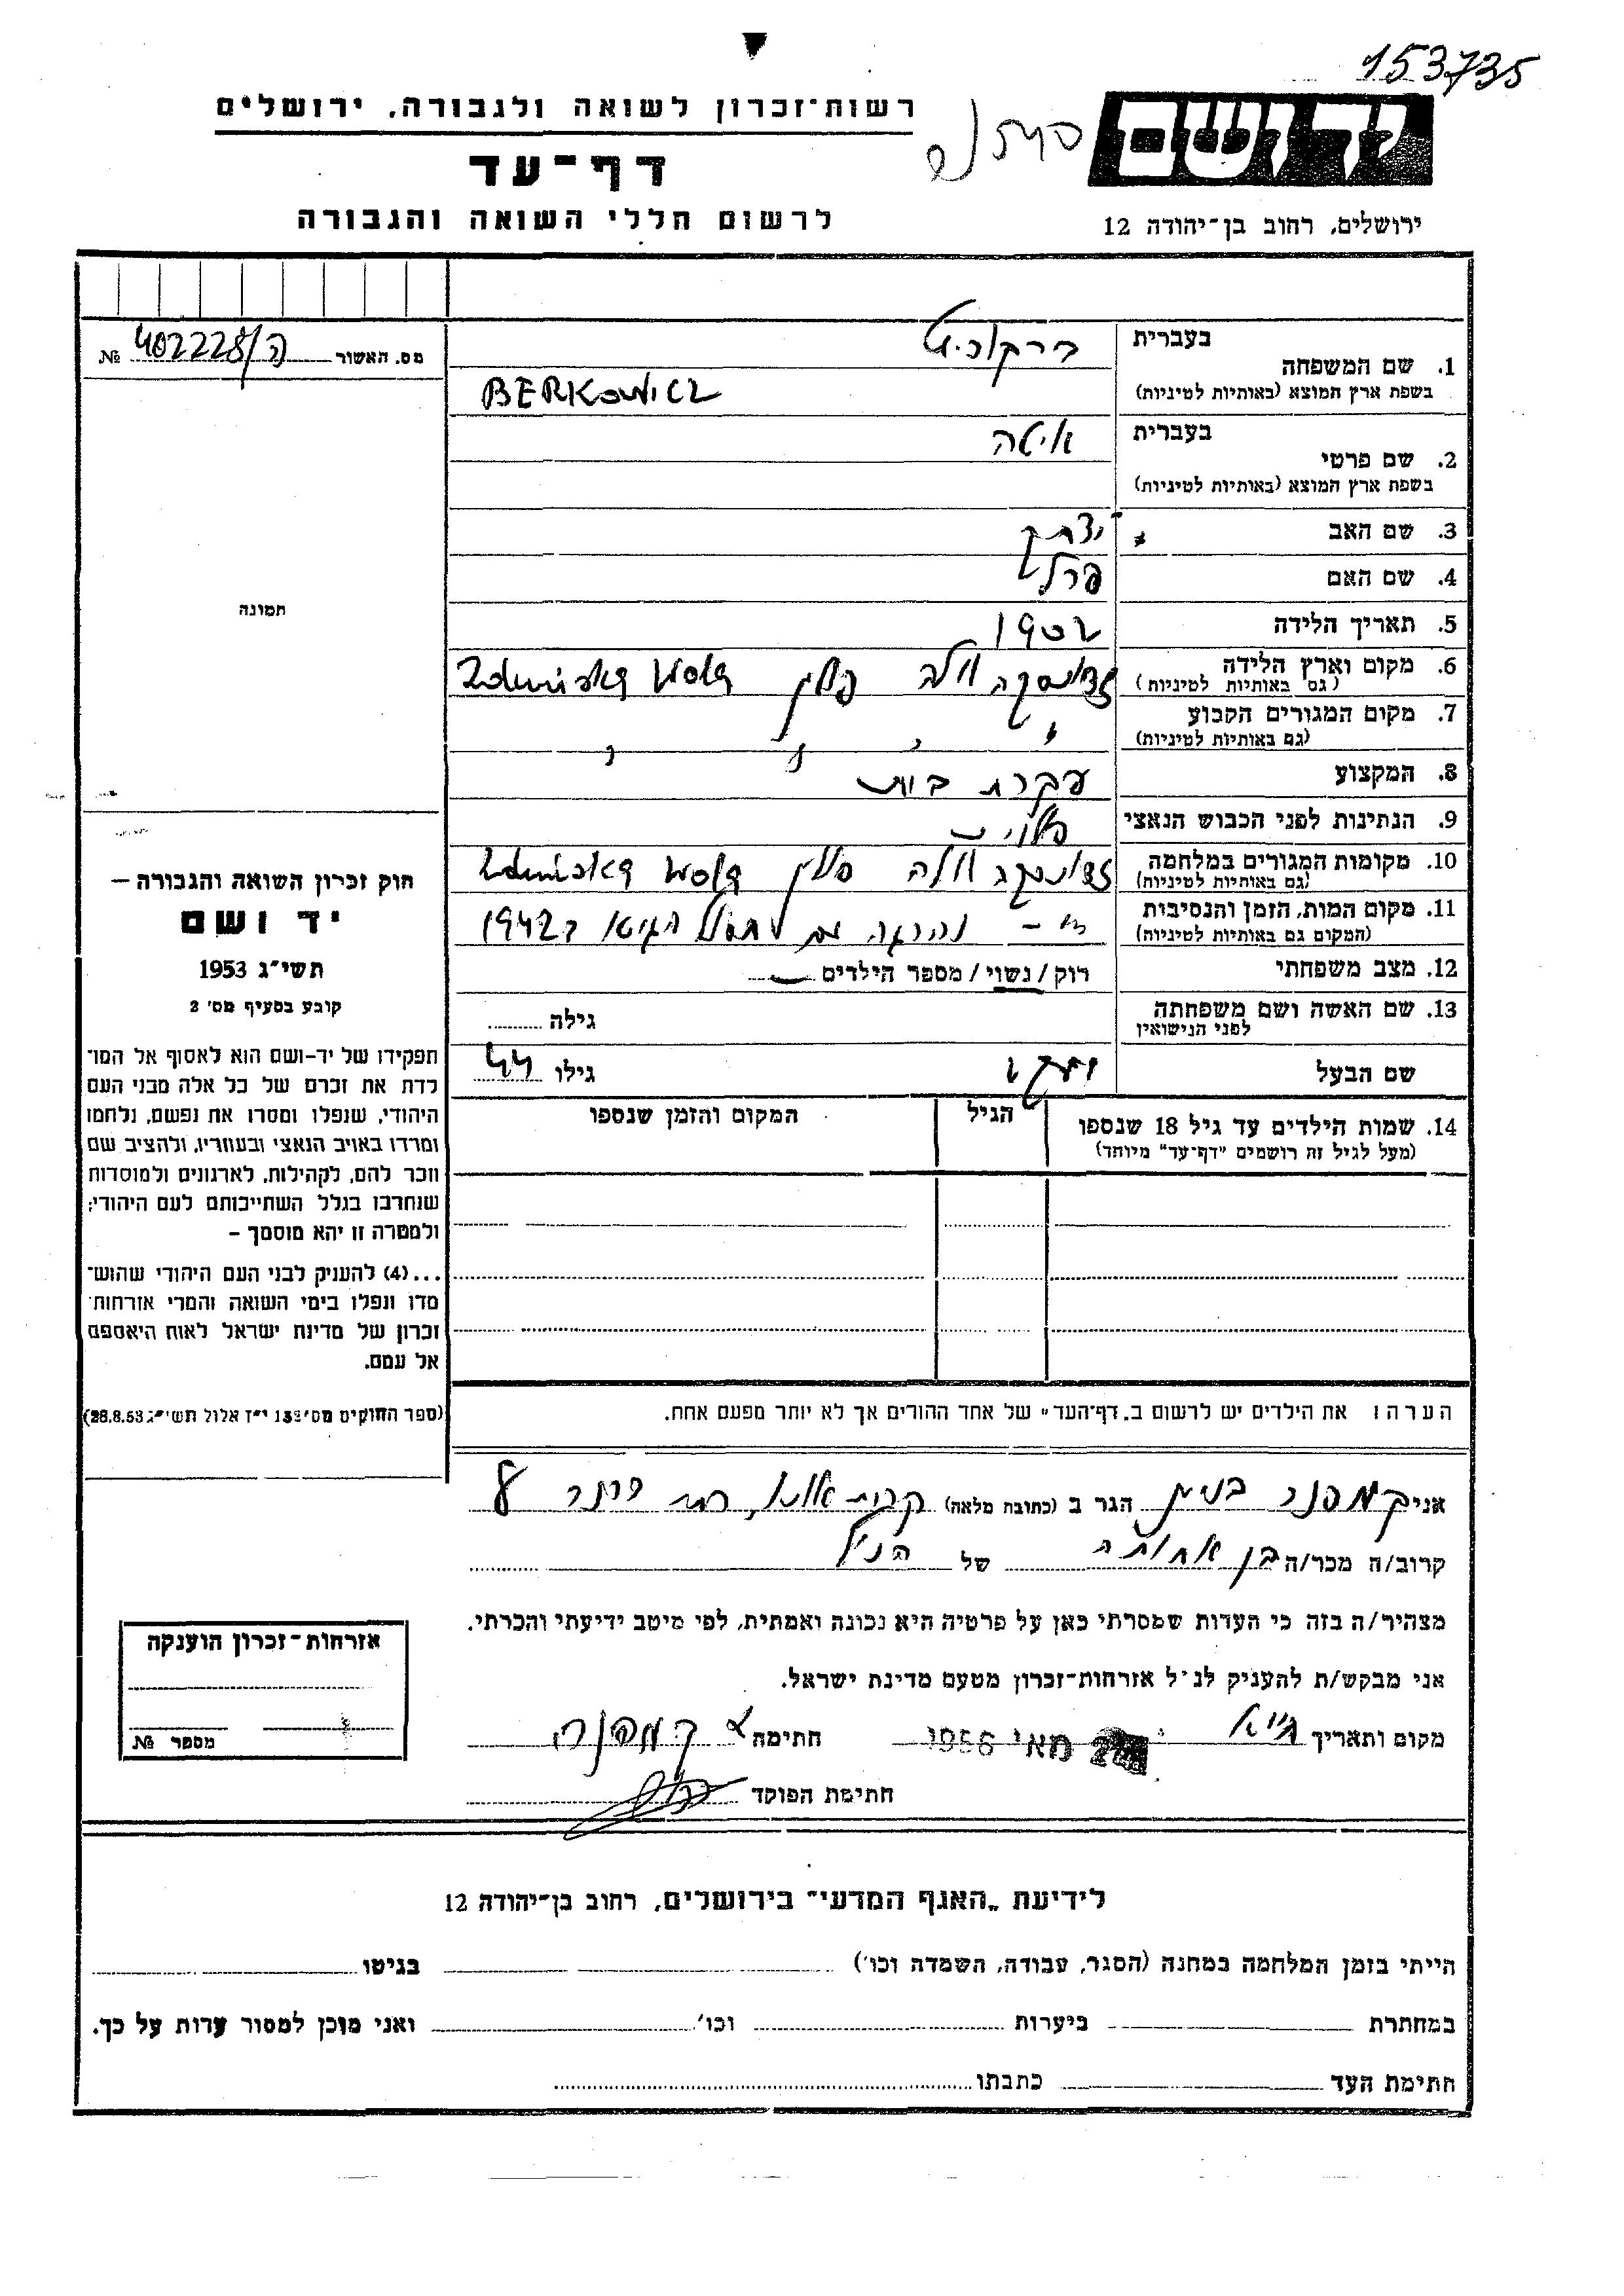 153735
רשות-זכרון לשואה ולגבורה, ירושלים
יד ושם
דף-עד
לרשום חללי השואה והגבורה
ירושלים, רחוב בן-יהודה 12
מס. האשור ה/402228 №
בעברית ברקוביץ
1. שם המשפחה
בשפת ארץ המוצא (באותיות לטיניות) BERKOWICZ
בעברית איטה
2. שם פרטי
בשפת ארץ המוצא (באותיות לטיניות)
3. שם האב יצחק
4. שם האם פרל
5. תאריך הלידה 1902
6. מקום וארץ הלידה זדונסקה וולה פולין Zdunska Wola
(גם באותיות לטיניות)
7. מקום המגורים הקבוע
(גם באותיות לטיניות)
8. המקצוע עקרת בית
9. הנתינות לפני הכבוש הנאצי פולנית
10. מקומות המגורים במלחמה זדונסקה וולה פולין Zdunska Wola
(גם באותיות לטיניות)
11. מקום המות, הזמן והנסיבות נהרגה עם חסול הגיטו ב 1942
(המקום גם באותיות לטיניות)
12. מצב משפחתי רוק / נשוי / מספר הילדים
13. שם האשה ושם משפחתה
לפני הנישואין גילה
שם הבעל גילו 44
14. שמות הילדים עד גיל 18 שנספו הגיל המקום והזמן שנספו
(מעל לגיל זה רושמים "דף-עד" מיוחד)
תמונה
חוק זכרון השואה והגבורה –
יד ושם
תשי"ג 1953
קובע בסעיף מס' 2
תפקידו של יד-ושם הוא לאסוף אל המו-
לדת את זכרם של כל אלה מבני העם
היהודי, שנפלו ומסרו את נפשם, נלחמו
ומרדו באויב הנאצי ובעוזריו, ולהציב שם
וזכר להם, לקהילות, לארגונים ולמוסדות
שנחרבו בגלל השתייכותם לעם היהודי;
ולמטרה זו יהא מוסמך –
...(4) להעניק לבני העם היהודי שהוש-
מדו ונפלו בימי השואה והמרי אזרחות-
זכרון של מדינת ישראל לאות היאספם
אל עמם.
(ספר החוקים מס' 132 י"ז אלול תשי"ג 28.8.53)
הערה: את הילדים יש לרשום ב"דף-העד" של אחד ההורים אך לא יותר מפעם אחת.
אני קמפנר הגר ב (כתובת מלאה) קרית אתא 8
קרוב/ה מכר/ה בן אחותה של הנ"ל
מצהיר/ה בזה כי העדות שמסרתי כאן על פרטיה היא נכונה ואמתית, לפי מיטב ידיעתי והכרתי.
אני מבקש/ת להעניק לנ"ל אזרחות-זכרון מטעם מדינת ישראל.
מקום ותאריך מאי 1956 חתימה
חתימת הפוקד
אזרחות-זכרון הוענקה
מספר №
לידיעת "האגף המדעי" בירושלים, רחוב בן-יהודה 12
הייתי בזמן המלחמה במחנה (הסגר, עבודה, השמדה וכו') בגיטו
במחתרת ביערות וכו' ואני מוכן למסור עדות על כך.
חתימת העד כתבתו